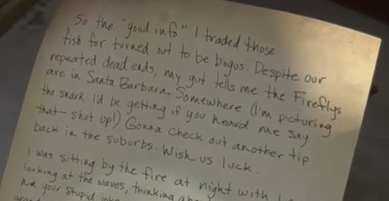 So the "good info" I traded those
fish for turned out to be bogus. Despite our
repeated dead ends, my gut tells me the Fireflys
are in Santa Barbara. Somewhere (I'm picturing
the snark I'd be getting if you heard me say
that— shut up!) Gonna check out another tip
back in the suburbs. Wish us luck.
I was sitting by the fire at night with
looking at the waves, thinking
him your stupid